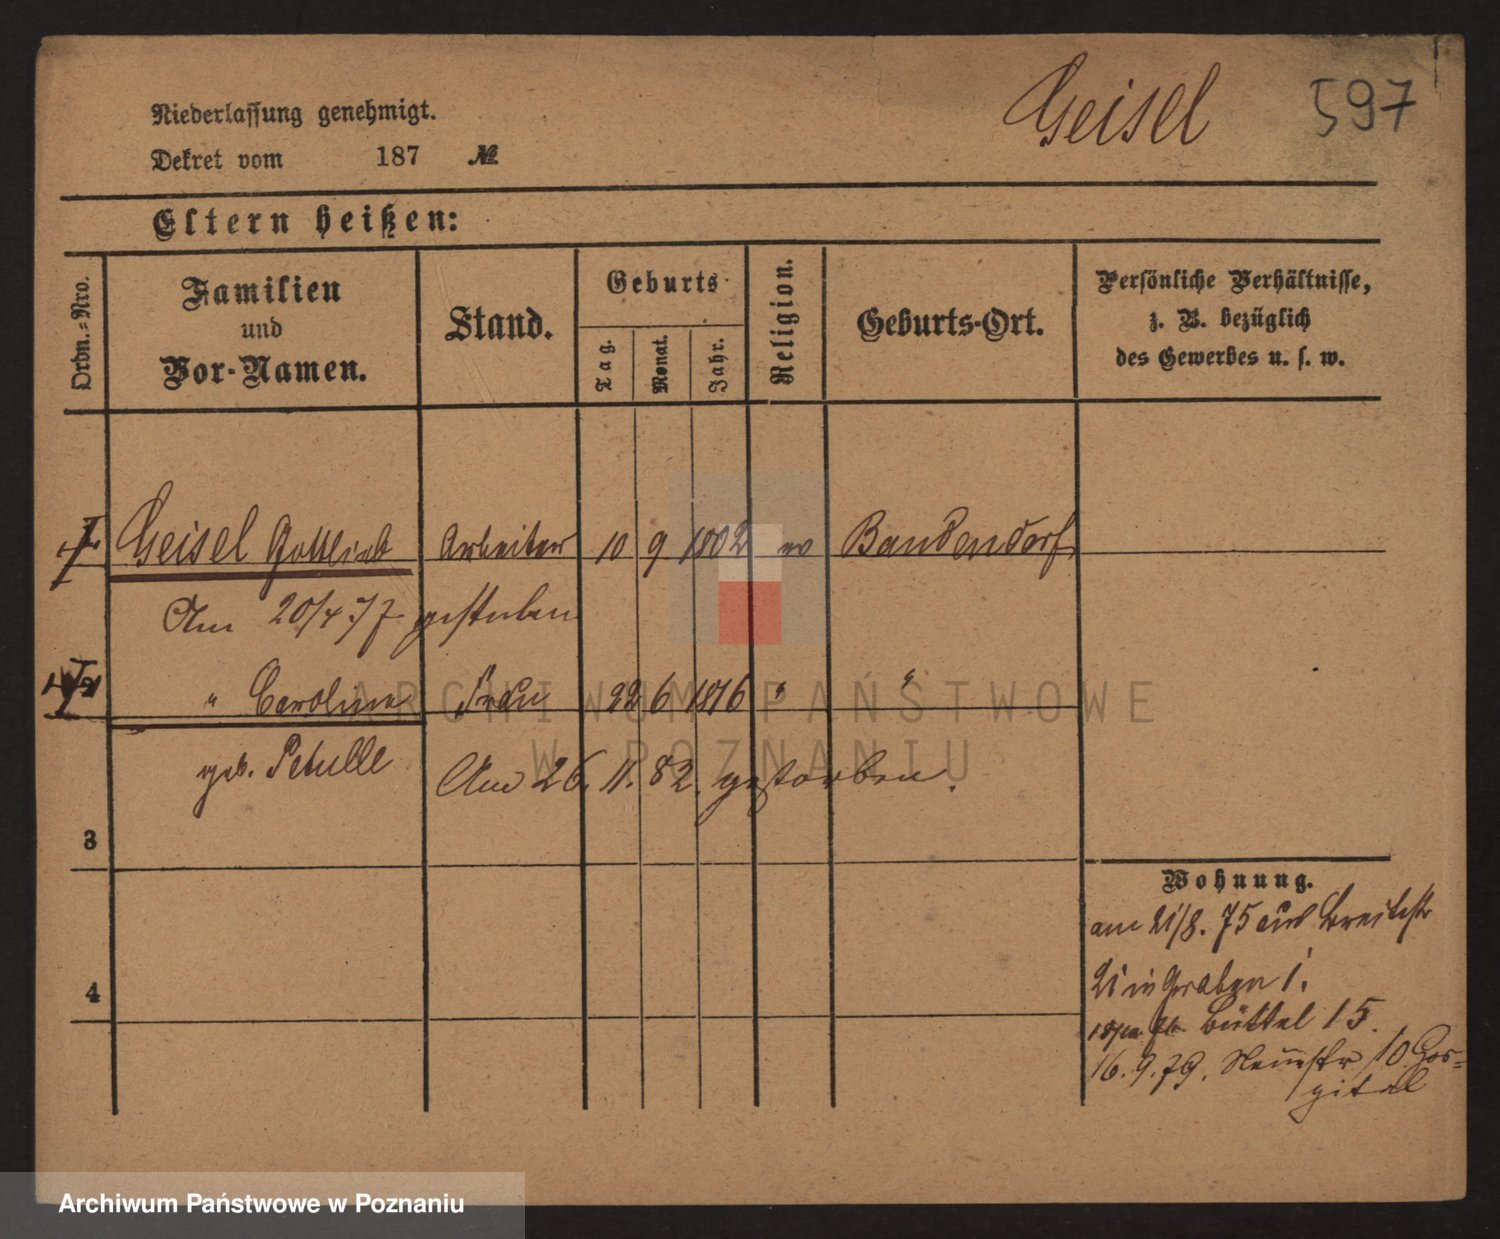 Geisel 597
Niederlassung genehmigt.
Dekret vom 187 №
Eltern heißen:
Ordn.-Nro.
Familien und Vor-Namen.
Stand.
Geburts
Tag. Monat. Jahr.
Religion.
Geburts-Ort.
Persönliche Verhältnisse,
z. B. bezüglich
des Gewerbes u. s. w.
Geisel Gottlieb Arbeiter 10 9 1802 ev Baudendorf
Am 20/4 77 gestorben
" Caroline Frau 22 6 1816 " "
geb. Petulle Am 26. 11. 82. gestorben.
3
Wohnung.
am 21/8. 75 aus Breitestr
21 in Graben 1.
4
Büttel 15.
16. 9. 79. Neuestr 10 Hos-
pital
ARCHIWUM PAŃSTWOWE
W POZNANIU
Archiwum Państwowe w Poznaniu